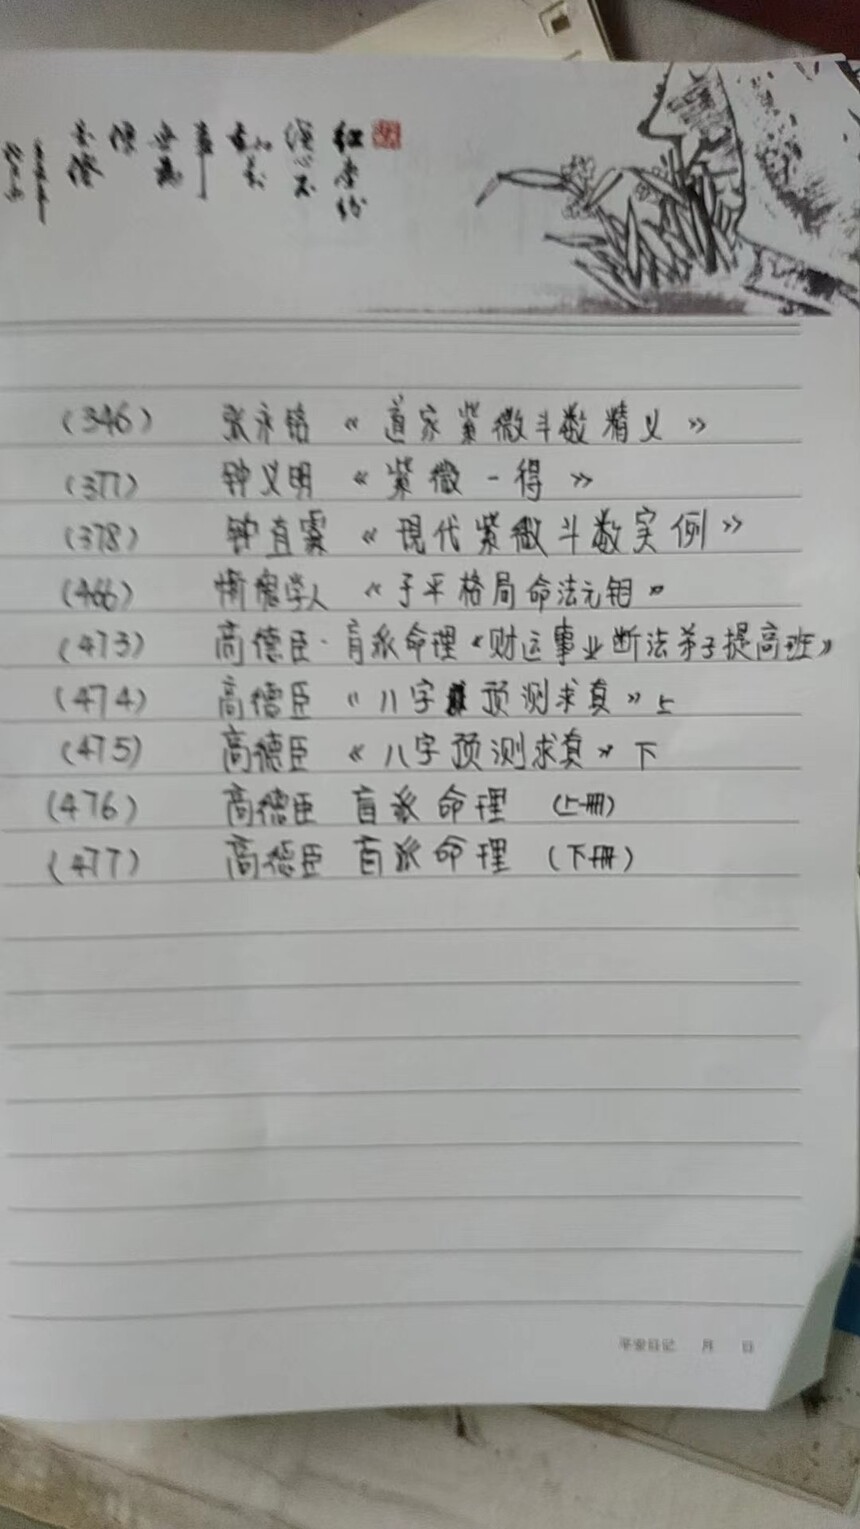 (346) 张永铭《道家紫微斗数精义》
(377) 钟义明《紫微一得》
(378) 钟直霖《现代紫微斗数实例》
(466) 惭愧学人《子平格局命法元钥》
(473) 高德臣·盲派命理《财运事业断法弟子提高班》
(474) 高德臣《八字预测求真》上
(475) 高德臣《八字预测求真》下
(476) 高德臣 盲派命理 (上册)
(477) 高德臣 盲派命理 (下册)
平安日记 月 日